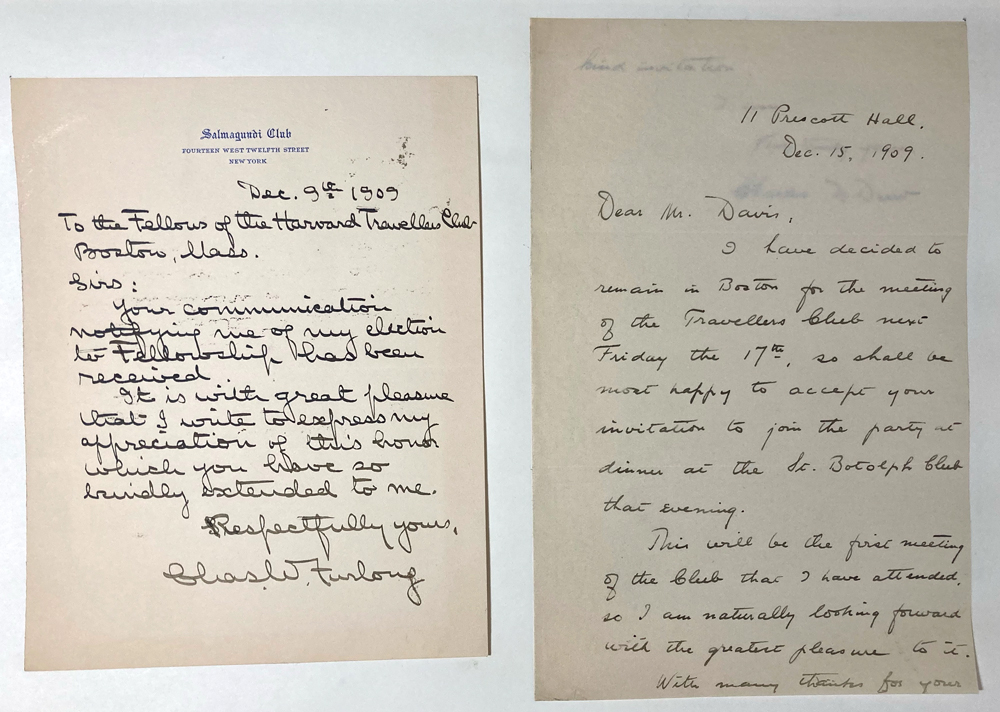 Salmagundi Club
FOURTEEN WEST TWELFTH STREET
NEW YORK
Dec. 9th 1909
To the Fellows of the Harvard Travellers Club
Boston, Mass.
Sirs:
Your communication
notifying me of my election
to Fellowship has been
received.
It is with great pleasure
that I write to express my
appreciation of this honor
which you have so
kindly extended to me.
Respectfully yours,
Chas. W. Furlong
kind invitation
11 Prescott Hall,
Dec. 15, 1909.
Dear Mr. Davis,
I have decided to
remain in Boston for the meeting
of the Travellers Club next
Friday the 17th, so shall be
most happy to accept your
invitation to join the party at
dinner at the St. Botolph Club
that evening.
This will be the first meeting
of the Club that I have attended,
so I am naturally looking forward
with the greatest pleasure to it.
With many thanks for your